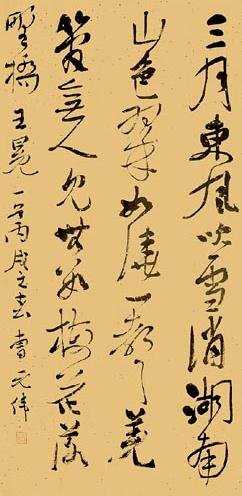 三月東風吹雪消湖南
山色翠如澆一聲羌
管無人見無數梅花落
野橋 王冕一首丙戌之 曹元伟